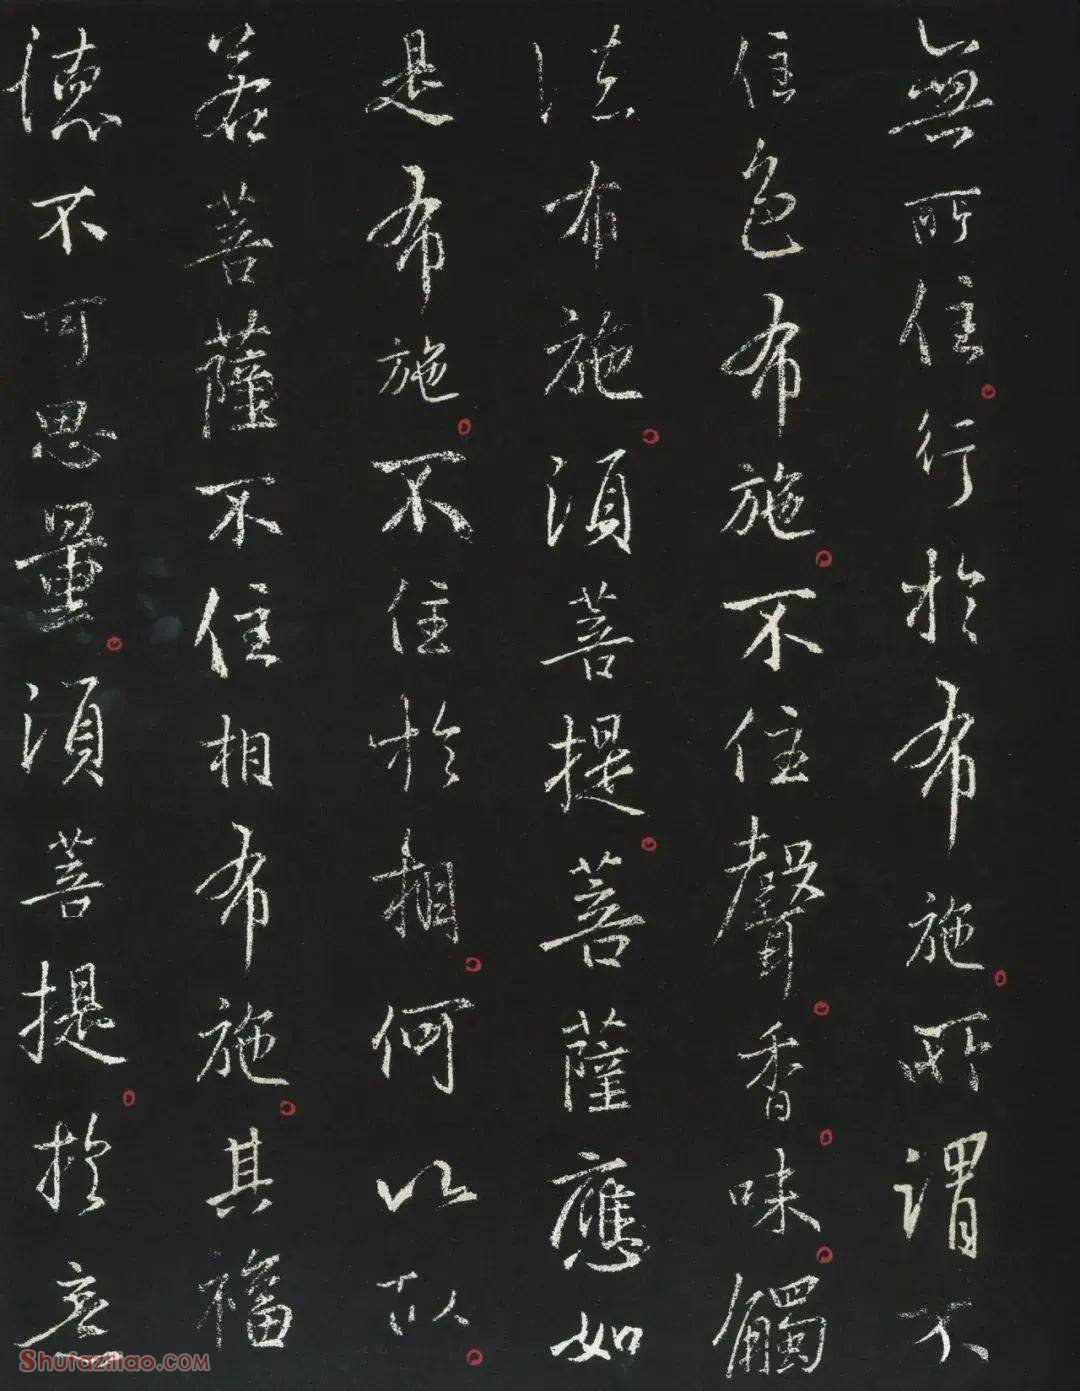 無所住。行於布施。所謂不
住色布施。不住聲。香。味。觸
法布施。須菩提。菩薩應如
是布施。不住於相。何以故。
若菩薩不住相布施。其福
德不可思量。須菩提。於意
Shufaziliao.COM